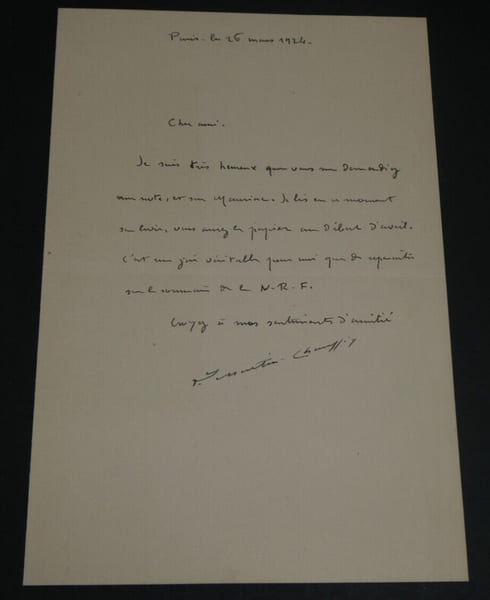 Paris - le 26 mars 1924.
Cher ami.
Je suis très heureux que vous me demandiez
une note, et sur Mauriac. Je lis en ce moment
son livre, vous aurez le papier au début d'avril.
C'est une joie véritable pour moi que de reparaître
sur le sommaire de la N.R.F.
Croyez à mes sentiments d'amitié
L. Martin-Chauffier